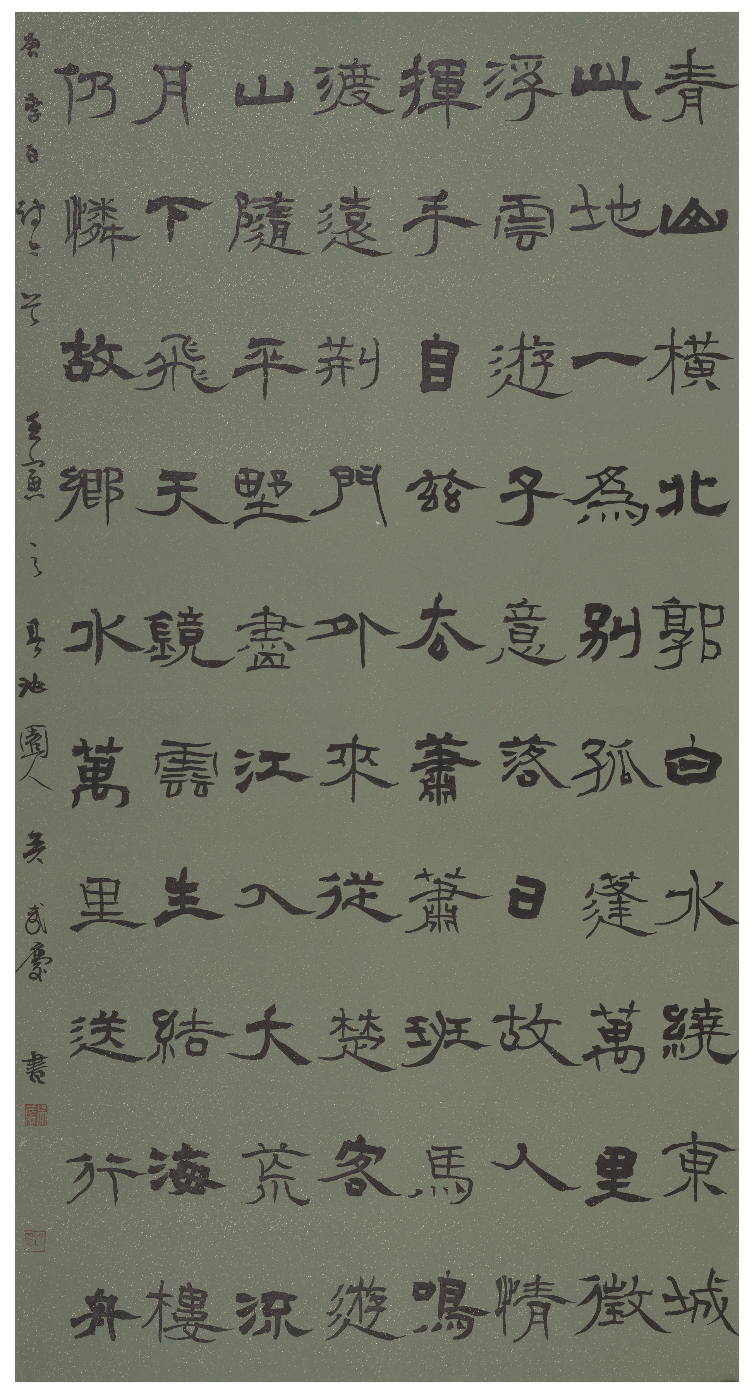 青山橫北郭白水繞東城
此地一爲別孤蓬萬里徵
浮雲遊子意落日故人情
揮手自茲去蕭蕭班馬鳴
渡遠荊門外來從楚客遊
山隨平野盡江入大荒流
月下飛天鏡雲生結海樓
仍憐故鄉水萬里送行舟
唐李白詩二首 壬寅之 池園人 吳武慶書